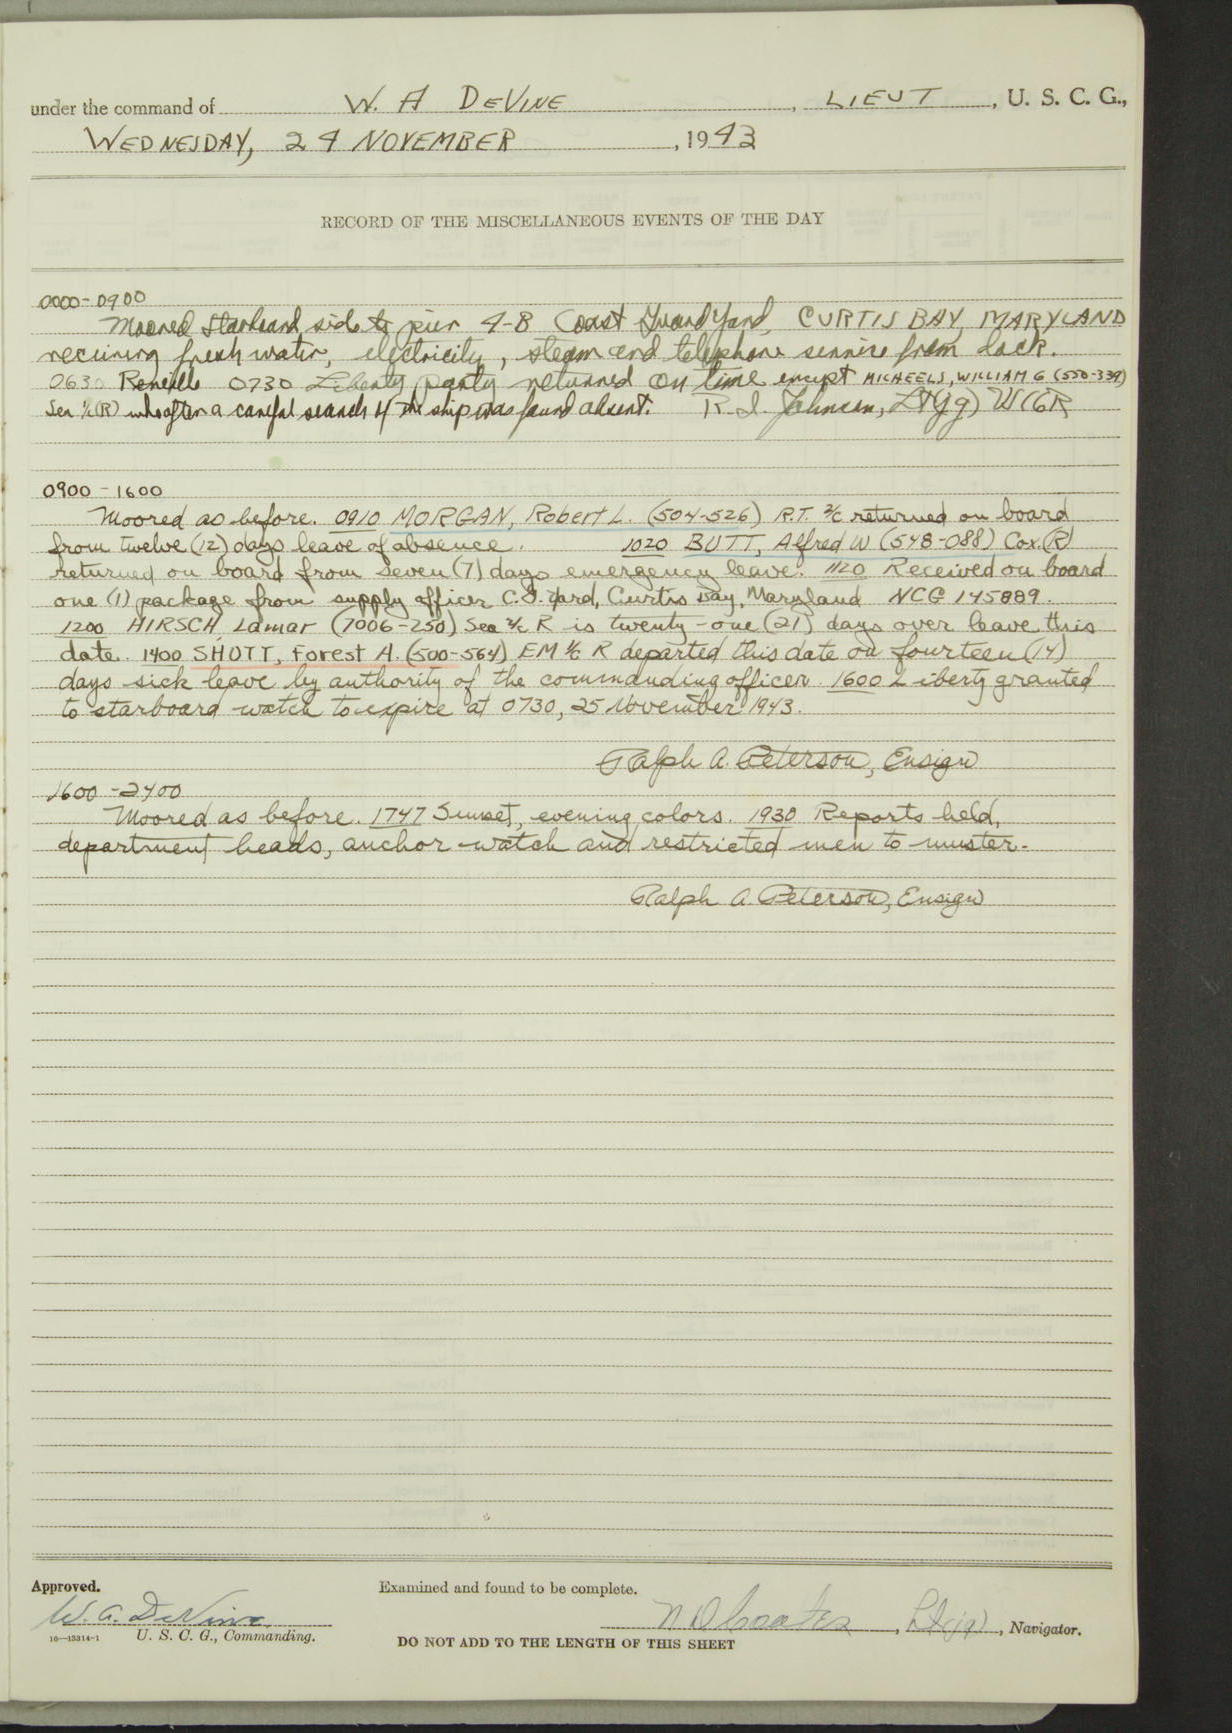 under the command of W. A DeVINE, LIEUT, U. S. C. G.,
WEDNESDAY, 24 NOVEMBER, 1943
RECORD OF THE MISCELLANEOUS EVENTS OF THE DAY
0000-0900
Moored starboard side to pier 4-B Coast Guard Yard, CURTIS BAY, MARYLAND
receiving fresh water, electricity, steam and telephone service from dock.
0630 Reveille 0730 Liberty party returned on time except MICHEELS, WILLIAM G (550-339)
Sea 1/c(R) who after a careful search of the ship was found absent. R. I. Johnson, Lt(jg) USCGR
0900-1600
Moored as before. 0910 MORGAN, Robert L. (504-526) R.T. 2/c returned on board
from twelve (12) days leave of absence. 1020 BUTT, Alfred W (548-088) Cox.(R)
returned on board from seven (7) days emergency leave. 1120 Received on board
one (1) package from supply officer C.G. Yard, Curtis Bay, Maryland NCG 145889.
1200 HIRSCH, Lamar (7006-250) Sea 2/c R is twenty-one (21) days over leave this
date. 1400 SHOTT, Forest A. (500-564) EM 1/c R departed this date on fourteen (14)
days sick leave by authority of the commanding officer. 1600 Liberty granted
to starboard watch to expire at 0730, 25 November 1943.
Ralph A. Peterson, Ensign
1600-2400
Moored as before. 1747 Sunset, evening colors. 1930 Reports held,
department heads, anchor watch and restricted men to muster.
Ralph A. Peterson, Ensign
Approved.
Examined and found to be complete.
W. A. DeVine
U. S. C. G., Commanding.
N D Coates, Lt(jg), Navigator.
16—13314-1
DO NOT ADD TO THE LENGTH OF THIS SHEET